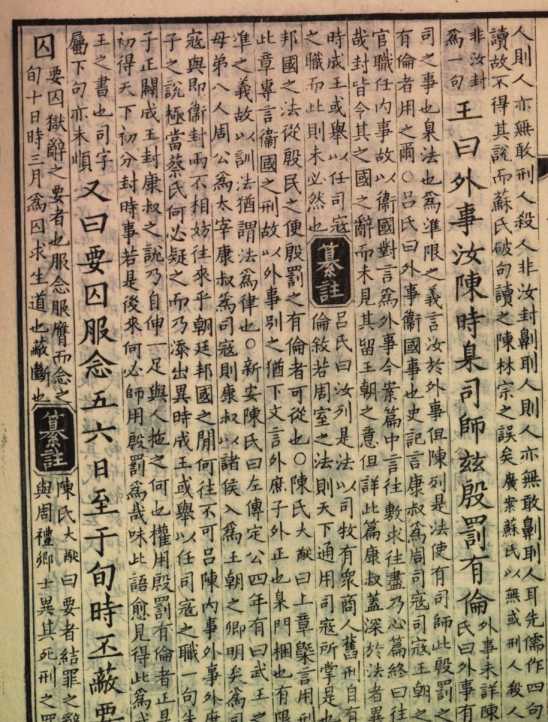 人則人亦無敢刑人殺人非汝封劓刵人則人亦無敢劓刵人耳先儒作四句
讀故不得其說而蘇氏破句讀之陳林宗之誤矣廣案蘇氏以無或刑人殺人
非汝封
爲一句
王曰外事汝陳時臬司師茲殷罰有倫
外事未詳陳
氏曰外事有
司之事也臬法也爲準限之義言汝於外事但陳列是法使有司師此殷罰之
有倫者用之爾○呂氏曰外事衞國事也史記言康叔爲周司寇司寇王朝之
官職任內事故以衞國對言爲外事今案篇中言往敷求往盡乃心篇終曰往
哉封皆令其之國之辭而未見其留王朝之意但詳此篇康叔蓋深於法者異
時成王或舉以任司寇
之職而此則未必然也
纂註
呂氏曰汝列是法以司牧有衆商人舊刑自有
倫敘若周室之法則天下通用司寇所掌是也
邦國之法從殷民之便殷罰之有倫者可從也○陳氏大猷曰上章槩言用刑
此章專言衞國之刑故以外事別之猶下文言外庶子外正也臬門梱也有限
準之義故以訓法猶謂法爲律也○新安陳氏曰左傳定公四年有曰武王之
母弟八人周公爲太宰康叔爲司寇則康叔以諸侯入爲王朝之卿明矣爲司
寇與卽衞封兩不相妨往來乎朝廷邦國之閒何往不可呂陳內事外事外庶
子之說極當蔡氏何必疑之而乃添出異時成王或舉以任司寇之職一句生
子正闢成王封康叔之說乃自伸一足與人拖之何也權用殷罰有倫者正是
初得天下初分封時事若是後來何必師用殷罰爲哉味此語愈見得此爲武
王之書也司字
屬下句亦未順
又曰要囚服念五六日至于旬時丕蔽要
囚
要囚獄辭之要者也服念服膺而念之
旬十日時三月爲囚求生道也蔽斷也
纂註
陳氏大猷曰要者結罪之辭
與周禮鄉士異其死刑之罪